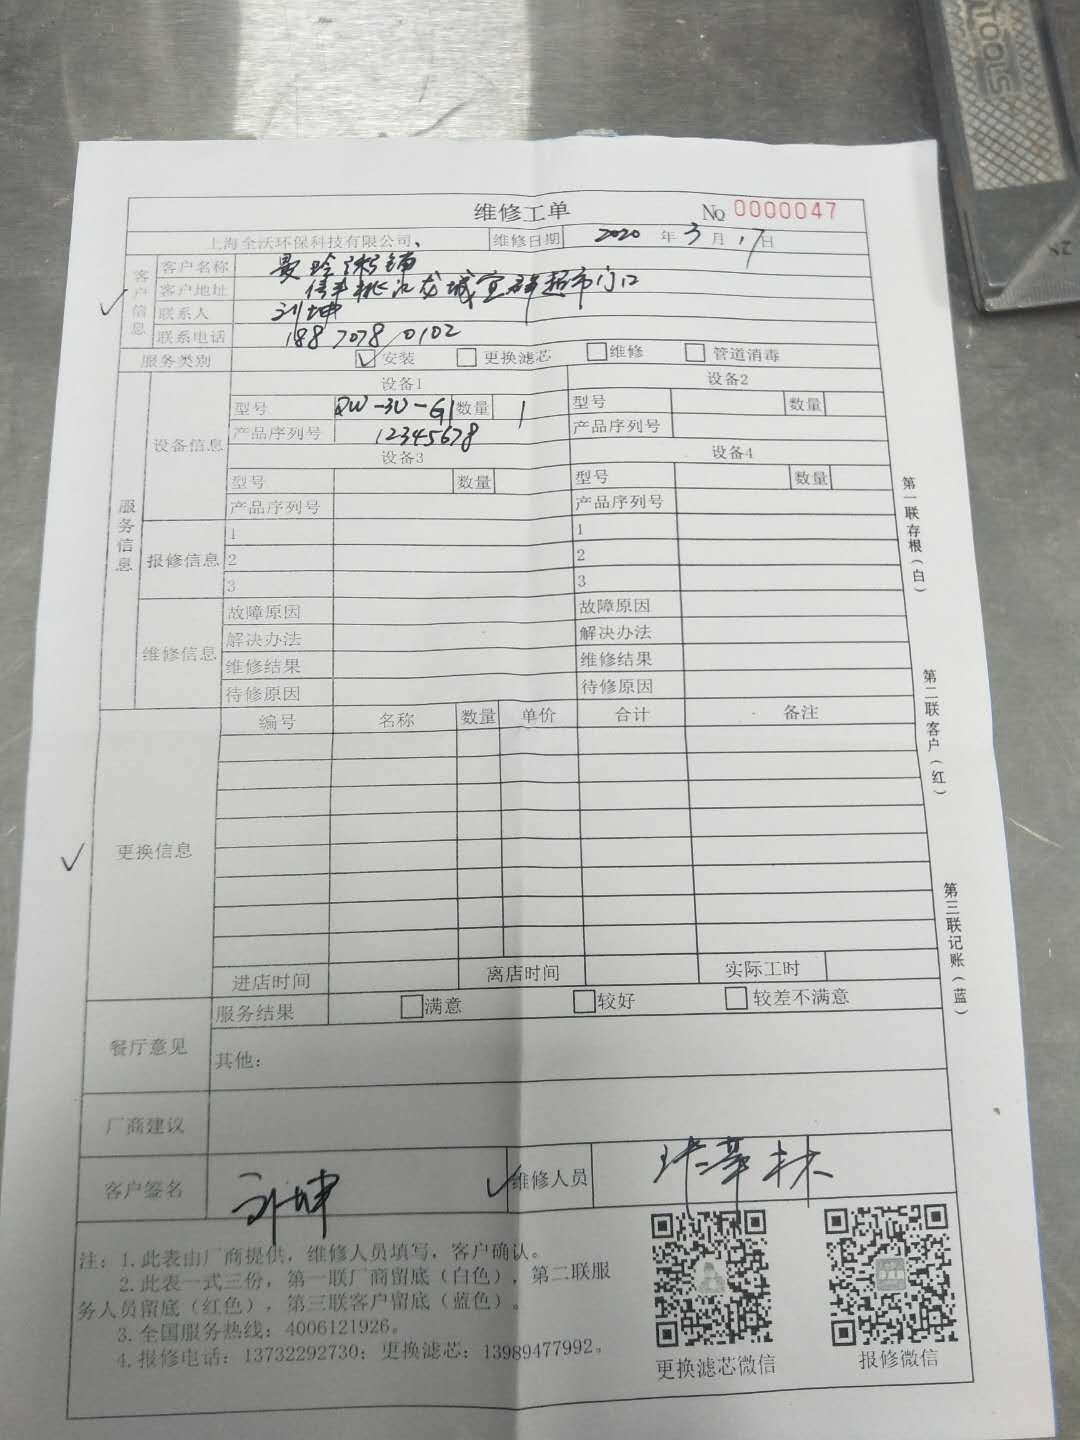 维修工单 No 0000047
上海全沃环保科技有限公司、 维修日期 2020 年 3 月 17 日
客户信息
客户名称
客户地址 信丰桃江龙城宜群超市门口
联系人 刘坤
联系电话 188 7078 0102
服务类别 安装 更换滤芯 维修 管道消毒
服务信息
设备信息
设备1 设备2
型号 QW-3U-G1 数量 1 型号 数量
产品序列号 12345678 产品序列号
设备3 设备4
型号 数量 型号 数量
产品序列号 产品序列号
报修信息
1 1
2 2
3 3
维修信息
故障原因 故障原因
解决办法 解决办法
维修结果 维修结果
待修原因 待修原因
更换信息
编号 名称 数量 单价 合计 备注
进店时间 离店时间 实际工时
餐厅意见
服务结果 满意 较好 较差不满意
其他：
厂商建议
客户签名 刘坤 维修人员
注：1.此表由厂商提供，维修人员填写，客户确认。
2.此表一式三份，第一联厂商留底（白色），第二联服
务人员留底（红色），第三联客户留底（蓝色）。
3.全国服务热线：4006121926。
4.报修电话：13732292730；更换滤芯：13989477992。
更换滤芯微信 报修微信
第一联存根（白）
第二联客户（红）
第三联记账（蓝）
TOOLS